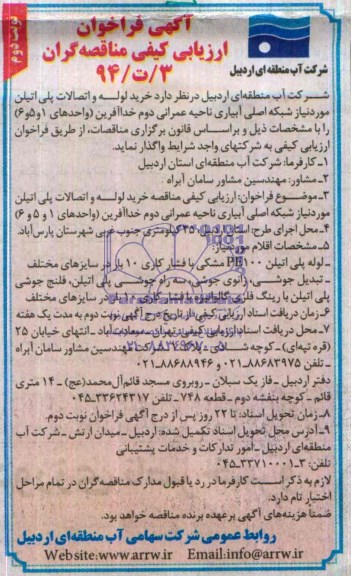 نوبت دوم
آگهی فراخوان
ارزیابی کیفی مناقصه‌گران
۹۴/ت/۳
شرکت آب منطقه‌ای اردبیل
شرکت آب منطقه‌ای اردبیل در نظر دارد خرید لوله و اتصالات پلی اتیلن
مورد نیاز شبکه اصلی آبیاری ناحیه عمرانی دوم خداآفرین (واحدهای ۱ و ۵ و ۶)
را با مشخصات ذیل و براساس قانون برگزاری مناقصات، از طریق فراخوان
ارزیابی کیفی به شرکتهای واجد شرایط واگذار نماید.
۱ـ کارفرما: شرکت آب منطقه‌ای استان اردبیل
۲ـ مشاور: مهندسین مشاور سامان آبراه
۳ـ موضوع فراخوان: ارزیابی کیفی مناقصه خرید لوله و اتصالات پلی اتیلن
مورد نیاز شبکه اصلی آبیاری ناحیه عمرانی دوم خداآفرین (واحدهای ۱ و ۵ و ۶)
۴ـ محل اجرای طرح: استان اردبیل، ۳۵ کیلومتری جنوب غربی شهرستان پارس‌آباد.
۵ـ مشخصات اقلام مورد نیاز:
ـ لوله پلی اتیلن PE۱۰۰ مشکی با فشار کاری ۱۰ بار در سایزهای مختلف
ـ تبدیل جوشی، زانوی جوشی، سه راه جوشی پلی اتیلن، فلنج جوشی
پلی اتیلن با رینگ فلزی گالوانیزه با فشار کاری ۱۰ بار در سایزهای مختلف
۶ـ زمان دریافت اسناد ارزیابی کیفی: از تاریخ درج آگهی نوبت دوم به مدت یک هفته
۷ـ محل دریافت اسناد ارزیابی کیفی: تهران ـ سعادت‌آباد ـ انتهای خیابان ۲۵
(قره تپه‌ای) ـ کوچه شادی ـ پلاک ـ شرکت مهندسین مشاور سامان آبراه
ـ تلفن ۸۸۶۸۳۹۷۵ـ۰۲۱ و ۸۸۶۸۸۹۴۶ـ۰۲۱
دفتر اردبیل ـ فاز یک سبلان ـ روبروی مسجد قائم آل محمد(عج) ـ ۱۴ متری
قائم ـ کوچه بنفشه دوم ـ قطعه ۷۴۸ ـ تلفن ۳۳۶۲۴۳۱۷ـ۰۴۵
۸ـ زمان تحویل اسناد: تا ۲۲ روز پس از درج آگهی فراخوان نوبت دوم.
۹ـ آدرس محل تحویل اسناد تکمیل شده: اردبیل ـ میدان ارتش ـ شرکت آب
منطقه‌ای اردبیل ـ امور تدارکات و خدمات پشتیبانی
تلفن: ۳ـ۳۳۷۱۰۰۰۱ـ۰۴۵
لازم به ذکر است کارفرما در رد یا قبول مدارک مناقصه‌گران در تمام مراحل
اختیار تام دارد.
ضمناً هزینه‌های آگهی بر عهده برنده مناقصه خواهد بود.
روابط عمومی شرکت سهامی آب منطقه‌ای اردبیل
Website:www.arrw.ir Email:info@arrw.ir